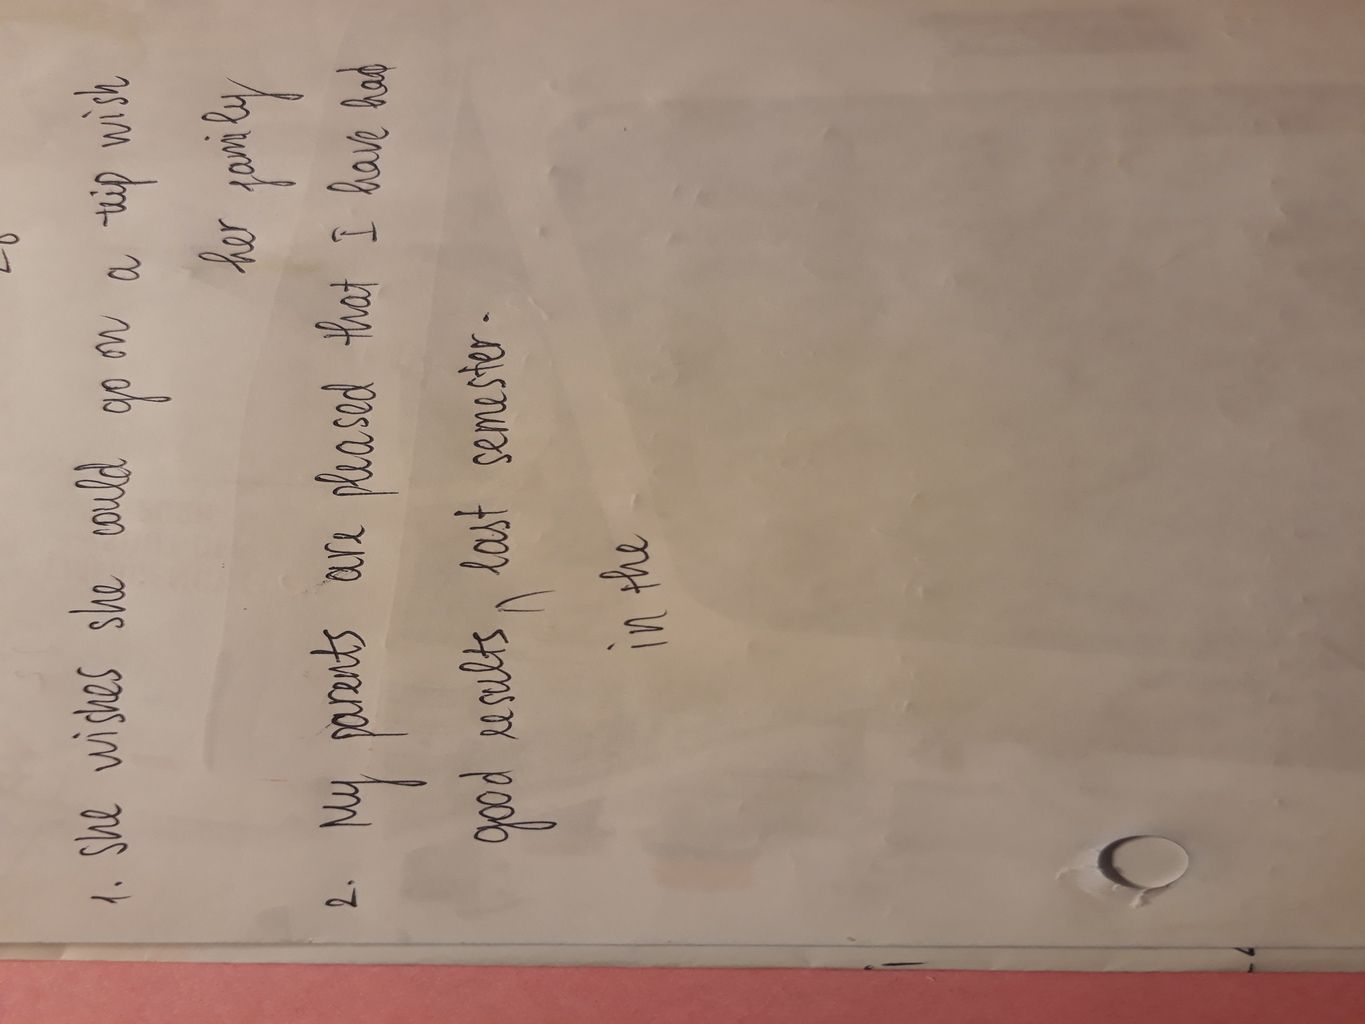 1. She wishes she could go on a trip wish
her family
2. My parents are pleased that I have had
good results ∧ last semester.
in the